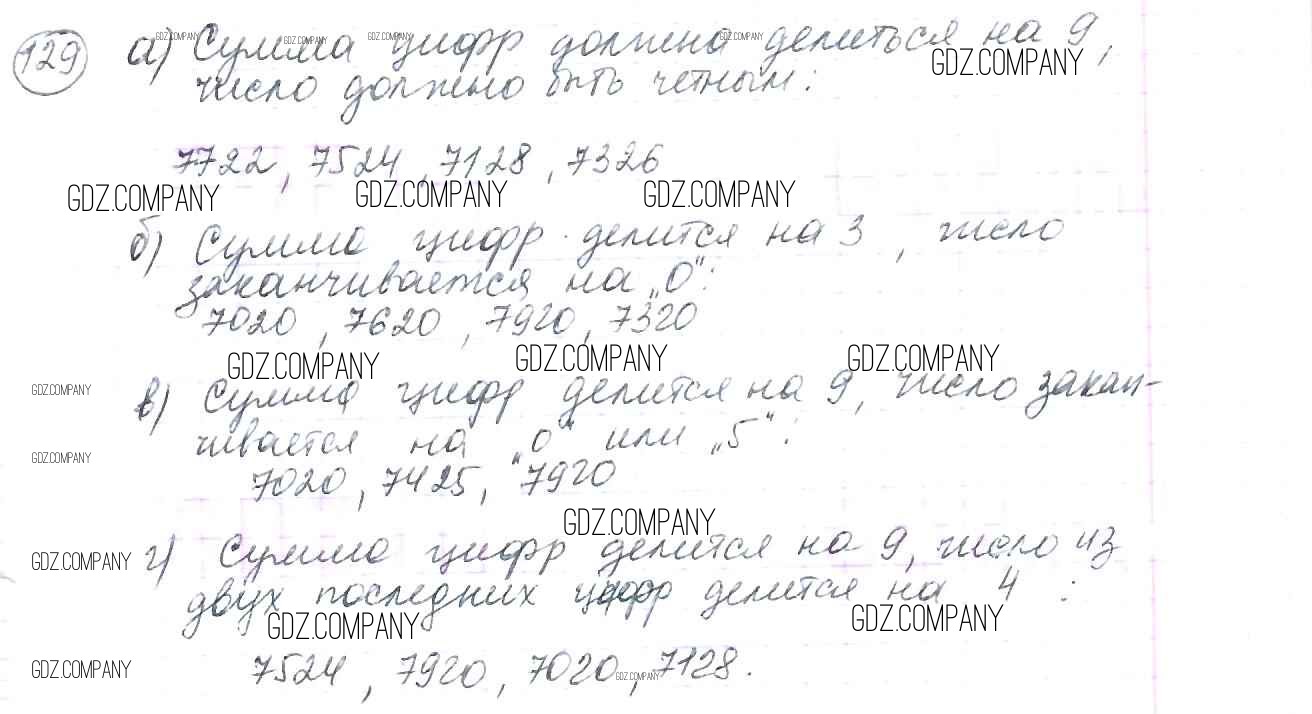 129 а) Сумма цифр должна делиться на 9,
число должно быть четным:
7722, 7524, 7128, 7326
б) Сумма цифр делится на 3, число
заканчивается на „0“:
7020, 7620, 7920, 7320
в) Сумма цифр делится на 9, число закан-
чивается на „0“ или „5“:
7020, 7425, 7920
г) Сумма цифр делится на 9, число из
двух последних цифр делится на 4:
7524, 7920, 7020, 7128.
GDZ.COMPANY
GDZ.COMPANY GDZ.COMPANY GDZ.COMPANY
GDZ.COMPANY GDZ.COMPANY GDZ.COMPANY
GDZ.COMPANY
GDZ.COMPANY
GDZ.COMPANY
GDZ.COMPANY
GDZ.COMPANY GDZ.COMPANY
GDZ.COMPANY GDZ.COMPANY
GDZ.COMPANY GDZ.COMPANY GDZ.COMPANY GDZ.COMPANY